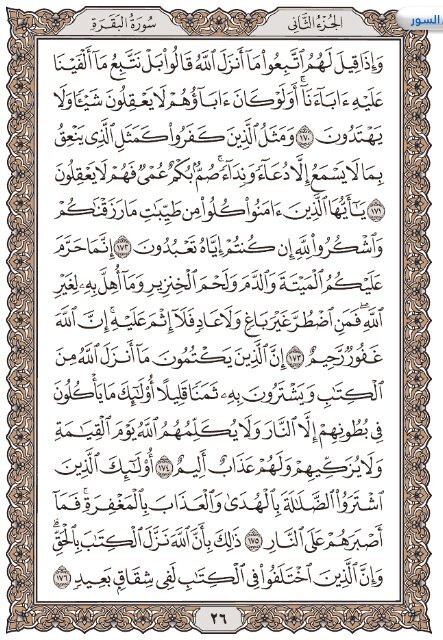 السور
الجزء الثاني
سورة البقرة
وَإِذَا قِيلَ لَهُمُ ٱتَّبِعُوا۟ مَآ أَنزَلَ ٱللَّهُ قَالُوا۟ بَلْ نَتَّبِعُ مَآ أَلْفَيْنَا
عَلَيْهِ ءَابَآءَنَآ ۗ أَوَلَوْ كَانَ ءَابَآؤُهُمْ لَا يَعْقِلُونَ شَيْـًٔا وَلَا
يَهْتَدُونَ ١٧٠ وَمَثَلُ ٱلَّذِينَ كَفَرُوا۟ كَمَثَلِ ٱلَّذِى يَنْعِقُ
بِمَا لَا يَسْمَعُ إِلَّا دُعَآءً وَنِدَآءً ۚ صُمٌّۢ بُكْمٌ عُمْىٌ فَهُمْ لَا يَعْقِلُونَ
١٧١ يَـٰٓأَيُّهَا ٱلَّذِينَ ءَامَنُوا۟ كُلُوا۟ مِن طَيِّبَـٰتِ مَا رَزَقْنَـٰكُمْ
وَٱشْكُرُوا۟ لِلَّهِ إِن كُنتُمْ إِيَّاهُ تَعْبُدُونَ ١٧٢ إِنَّمَا حَرَّمَ
عَلَيْكُمُ ٱلْمَيْتَةَ وَٱلدَّمَ وَلَحْمَ ٱلْخِنزِيرِ وَمَآ أُهِلَّ بِهِۦ لِغَيْرِ
ٱللَّهِ ۖ فَمَنِ ٱضْطُرَّ غَيْرَ بَاغٍ وَلَا عَادٍ فَلَآ إِثْمَ عَلَيْهِ ۚ إِنَّ ٱللَّهَ
غَفُورٌ رَّحِيمٌ ١٧٣ إِنَّ ٱلَّذِينَ يَكْتُمُونَ مَآ أَنزَلَ ٱللَّهُ مِنَ
ٱلْكِتَـٰبِ وَيَشْتَرُونَ بِهِۦ ثَمَنًا قَلِيلًا ۙ أُو۟لَـٰٓئِكَ مَا يَأْكُلُونَ
فِى بُطُونِهِمْ إِلَّا ٱلنَّارَ وَلَا يُكَلِّمُهُمُ ٱللَّهُ يَوْمَ ٱلْقِيَـٰمَةِ
وَلَا يُزَكِّيهِمْ وَلَهُمْ عَذَابٌ أَلِيمٌ ١٧٤ أُو۟لَـٰٓئِكَ ٱلَّذِينَ
ٱشْتَرَوُا۟ ٱلضَّلَـٰلَةَ بِٱلْهُدَىٰ وَٱلْعَذَابَ بِٱلْمَغْفِرَةِ ۚ فَمَآ
أَصْبَرَهُمْ عَلَى ٱلنَّارِ ١٧٥ ذَٰلِكَ بِأَنَّ ٱللَّهَ نَزَّلَ ٱلْكِتَـٰبَ بِٱلْحَقِّ ۗ
وَإِنَّ ٱلَّذِينَ ٱخْتَلَفُوا۟ فِى ٱلْكِتَـٰبِ لَفِى شِقَاقٍۭ بَعِيدٍ ١٧٦
٢٦